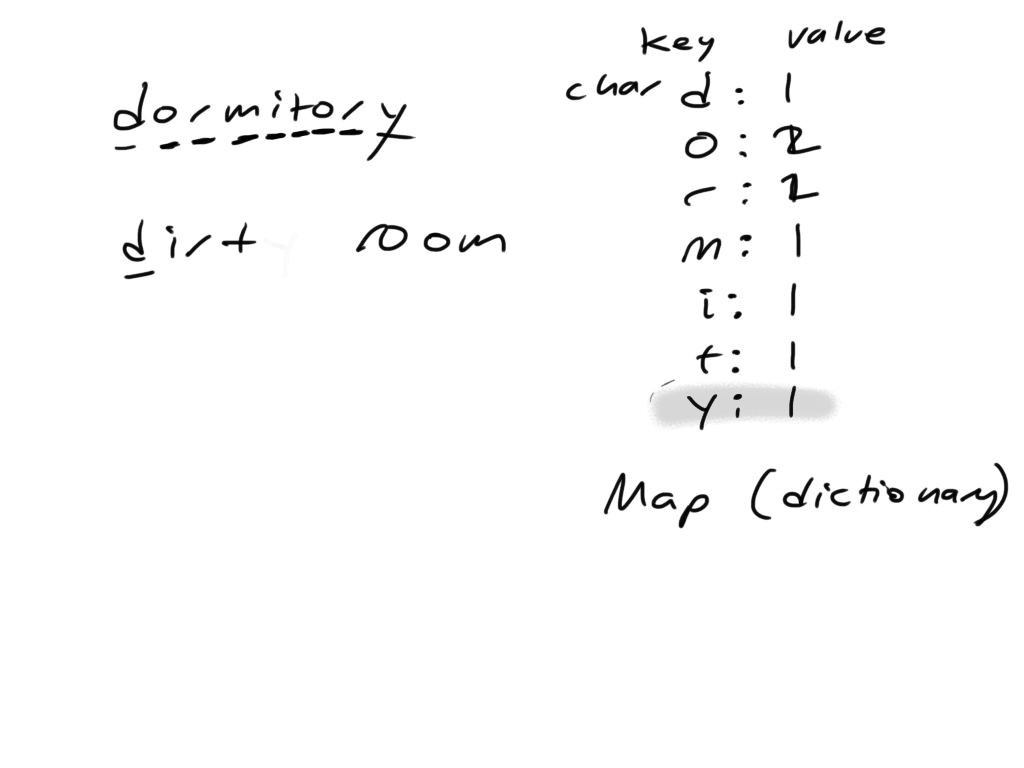 dormitory
dirt room
key value
char d: 1
o: 2
r: 2
m: 1
i: 1
t: 1
y: 1
Map (dictionary)